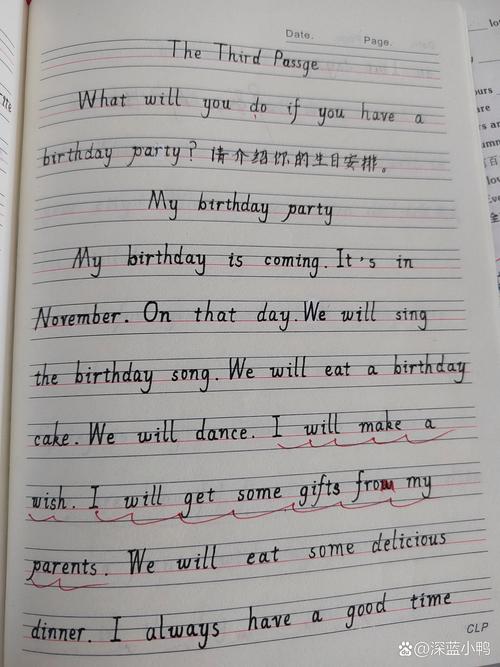 Date.
Page.
The Third Passge
What will you do if you have a
birthday party? 请介绍你的生日安排。
My birthday party
My birthday is coming. It's in
November. On that day. We will sing
the birthday song. We will eat a birthday
cake. We will dance. I will make a
wish. I will get some gifts from my
parents. We will eat some delicious
dinner. I always have a good time
CLP
@深蓝小鸭